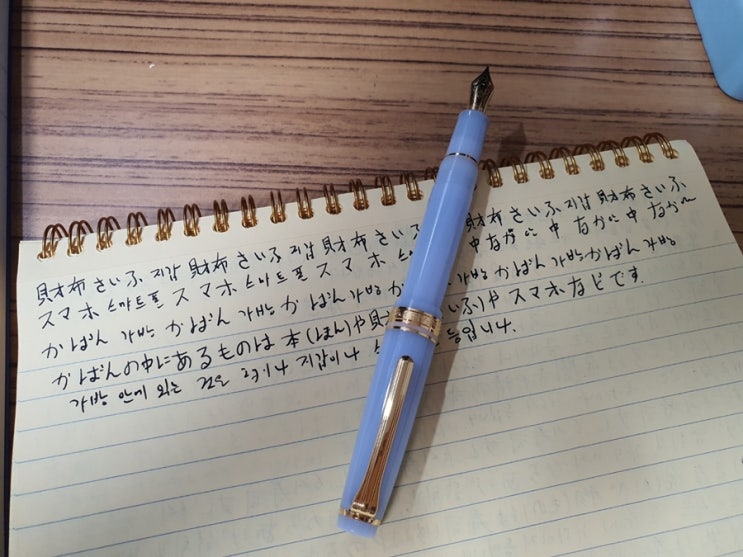 財布 さいふ 지갑 財布 さいふ 지갑 財布 さいふ 지갑 財布 さいふ 지갑 財布 さいふ
スマホ 스마트폰 スマホ 스마트폰 スマホ 中 なか 中 なか
かばん 가방 かばん 가방 かばん 가방 かばん 가방 かばん 가방
かばんの中にあるものは本(ほん)や財 いふ)やスマホなどです.
가방 안에 있는 것은 책이나 지갑이나 등입니다.